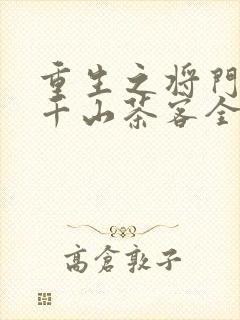 重生之将门
千山茶客全
高倉敦子